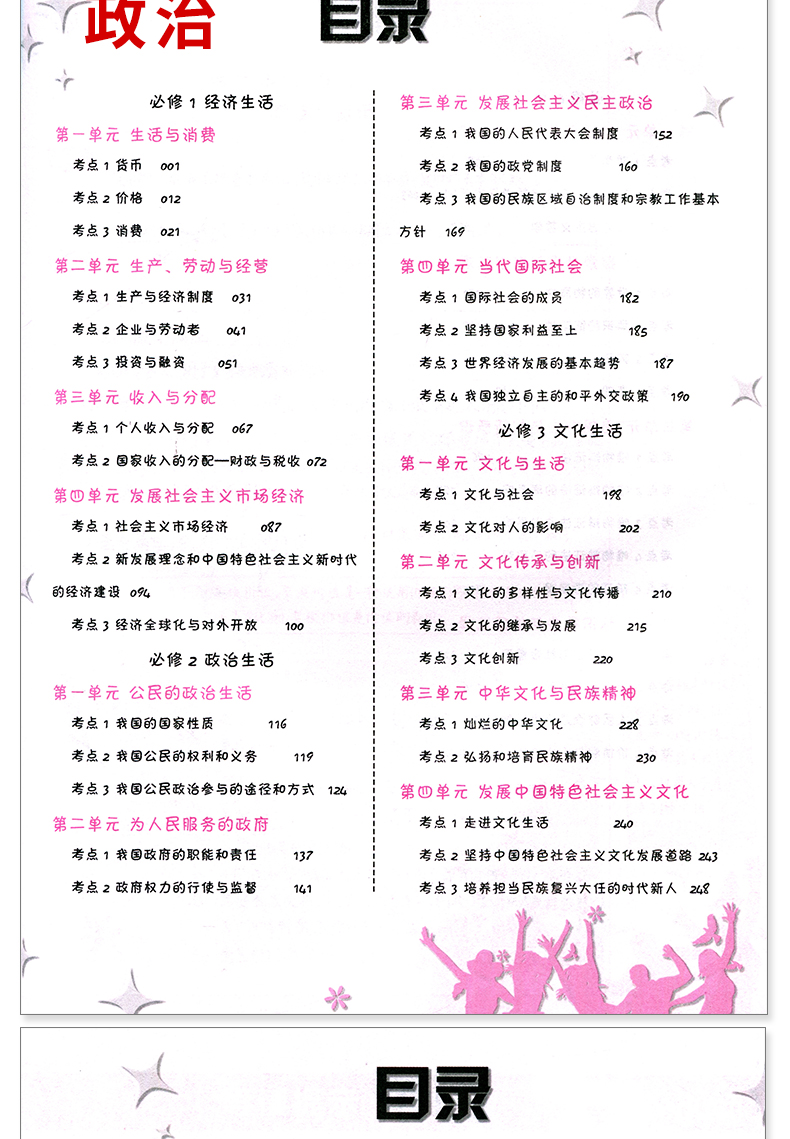 政治
目录
必修1 经济生活
第一单元 生活与消费
考点1 货币 001
考点2 价格 012
考点3 消费 021
第二单元 生产、劳动与经营
考点1 生产与经济制度 031
考点2 企业与劳动者 041
考点3 投资与融资 051
第三单元 收入与分配
考点1 个人收入与分配 067
考点2 国家收入的分配—财政与税收 072
第四单元 发展社会主义市场经济
考点1 社会主义市场经济 087
考点2 新发展理念和中国特色社会主义新时代
的经济建设 094
考点3 经济全球化与对外开放 100
必修2 政治生活
第一单元 公民的政治生活
考点1 我国的国家性质 116
考点2 我国公民的权利和义务 119
考点3 我国公民政治参与的途径和方式 124
第二单元 为人民服务的政府
考点1 我国政府的职能和责任 137
考点2 政府权力的行使与监督 141
第三单元 发展社会主义民主政治
考点1 我国的人民代表大会制度 152
考点2 我国的政党制度 160
考点3 我国的民族区域自治制度和宗教工作基本
方针 169
第四单元 当代国际社会
考点1 国际社会的成员 182
考点2 坚持国家利益至上 185
考点3 世界经济发展的基本趋势 187
考点4 我国独立自主的和平外交政策 190
必修3 文化生活
第一单元 文化与生活
考点1 文化与社会 198
考点2 文化对人的影响 202
第二单元 文化传承与创新
考点1 文化的多样性与文化传播 210
考点2 文化的继承与发展 215
考点3 文化创新 220
第三单元 中华文化与民族精神
考点1 灿烂的中华文化 228
考点2 弘扬和培育民族精神 230
第四单元 发展中国特色社会主义文化
考点1 走进文化生活 240
考点2 坚持中国特色社会主义文化发展道路 243
考点3 培养担当民族复兴大任的时代新人 248
目录